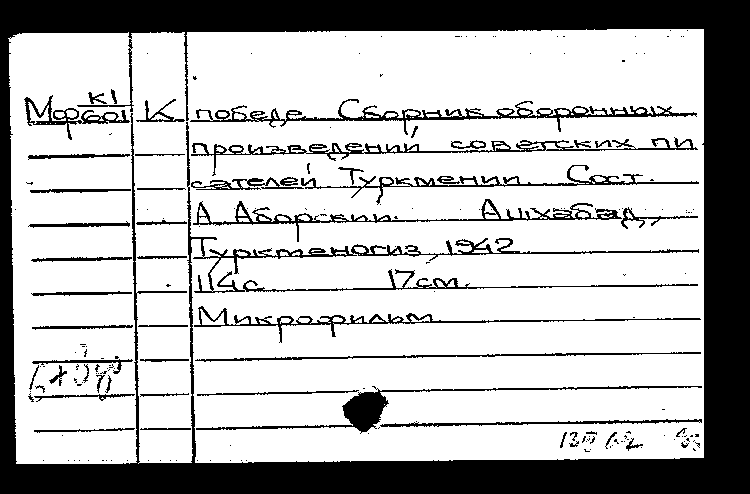 Мор к1/601 К победе. Сборник оборонных
произведений советских пи
сателей Туркмении. Сост.
А. Аборский. Ашхабад,
Туркменогиз, 1942
114с 17см.
Микрофильм
13 III 62